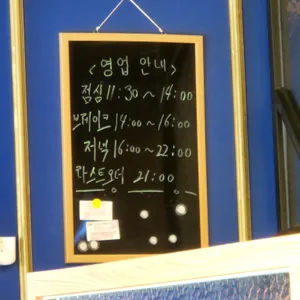 <영업 안내>
점심 11:30~14:00
브레이크 14:00~16:00
저녁 16:00~22:00
라스트오더 21:00